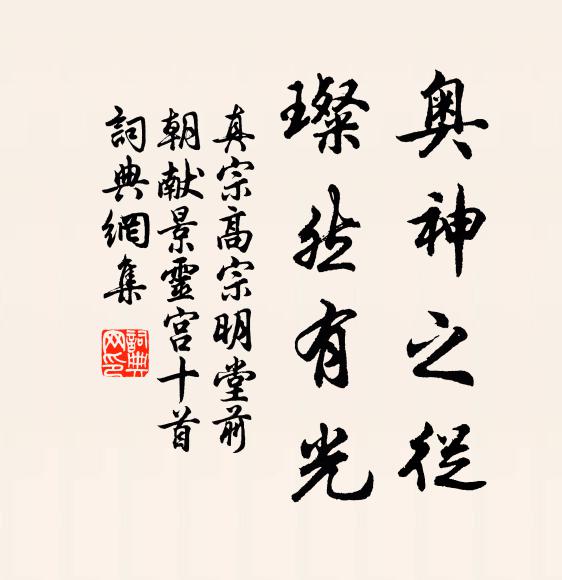 奥神之從
璨然有光
真宗高宗明堂前
朝献景靈宫十首
詞典網集
詞典網印